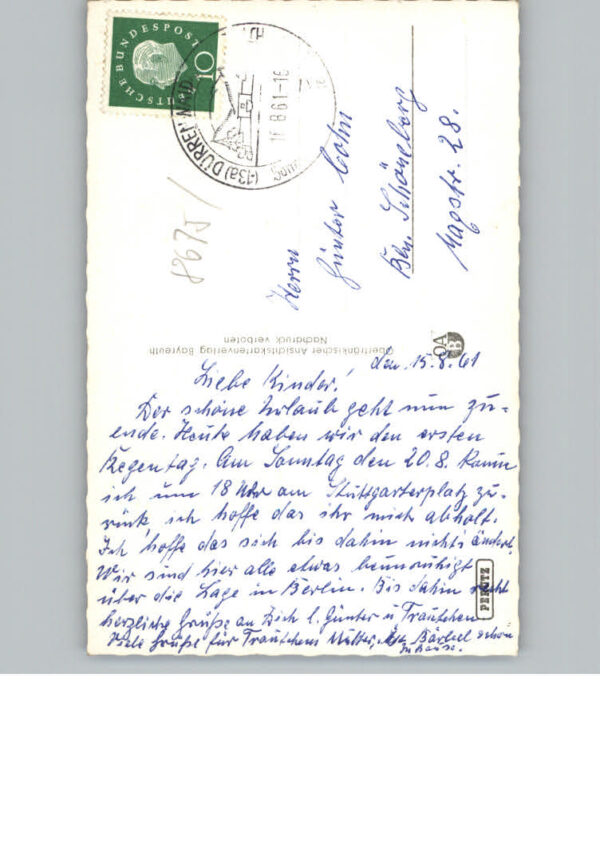 DEUTSCHE BUNDESPOST
10
(13a) DÜRRENWAID
16.8.61-16
8675
Herrn
Günter Cohn
Bln. Schöneberg
28.
Oberfränkischer Ansichtskartenverlag Bayreuth
Nachdruck verboten
OA
B
den 15.8.61
Liebe Kinder!
Der schöne Urlaub geht nun zu-
ende. Heute haben wir den ersten
Regentag. Am Sonntag den 20.8. kann
ich um 18 Uhr am Stuttgarterplatz zu-
rück, ich hoffe das ihr mich abholt.
Ich hoffe das sich bis dahin nichts ändert.
Wir sind hier alle etwas beunruhigt
über die Lage in Berlin. Bis dahin recht
herzliche Grüße an Dich l. Günter u Trautchen
Viele Grüße für Trautchens Mutter, Bärbel schon
zuhause.
PERUTZ